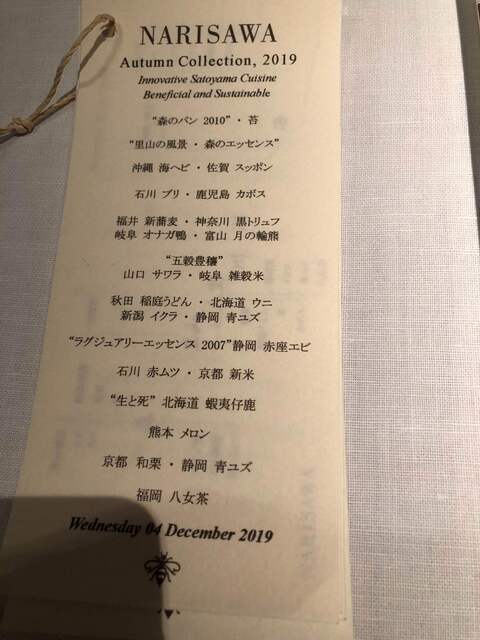 NARISAWA
Autumn Collection, 2019
Innovative Satoyama Cuisine
Beneficial and Sustainable
“森のパン 2010”・苔
“里山の風景・森のエッセンス”
沖縄 海ヘビ・佐賀 スッポン
石川 ブリ・鹿児島 カボス
福井 新蕎麦・神奈川 黒トリュフ
岐阜 オナガ鴨・富山 月の輪熊
“五穀豊穣”
山口 サワラ・岐阜 雑穀米
秋田 稲庭うどん・北海道 ウニ
新潟 イクラ・静岡 青ユズ
“ラグジュアリーエッセンス 2007”静岡 赤座エビ
石川 赤ムツ・京都 新米
“生と死” 北海道 蝦夷仔鹿
熊本 メロン
京都 和栗・静岡 青ユズ
福岡 八女茶
Wednesday 04 December 2019